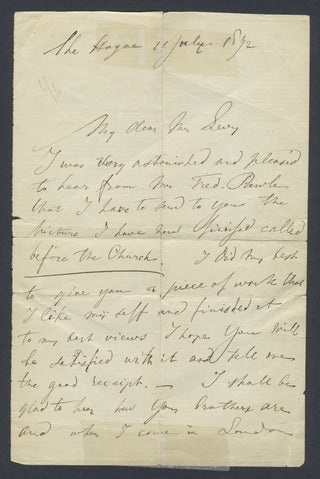 The Hague 11 July 1892
My dear Mr Levy
I was very astonished and pleased
to hear from Mr Fred. Pawle
that I have to send to you the
picture I have now finished called
before the Church. I did my best
to give you a piece of work that
I like my self and finished it
to my best views I hope you will
be satisfied with it and tell me
the good receipt. — I shall be
glad to hear how your brothers are
and when I come in London